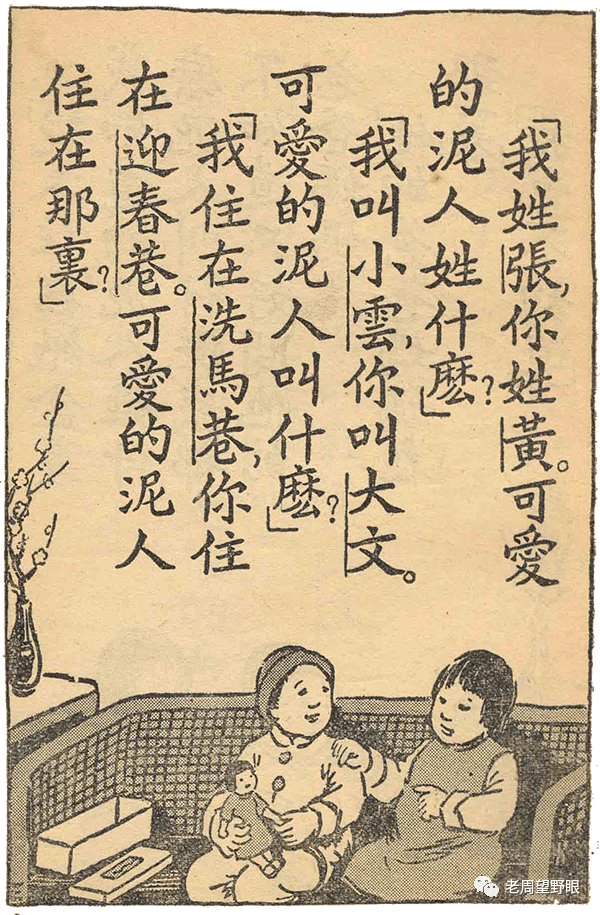 「我姓張，你姓黃。可愛
的泥人姓什麽？」
「我叫小雲，你叫大文。
可愛的泥人叫什麽？」
「我住在洗馬巷，你住
在迎春巷。可愛的泥人
住在那裏？」
老周望野眼